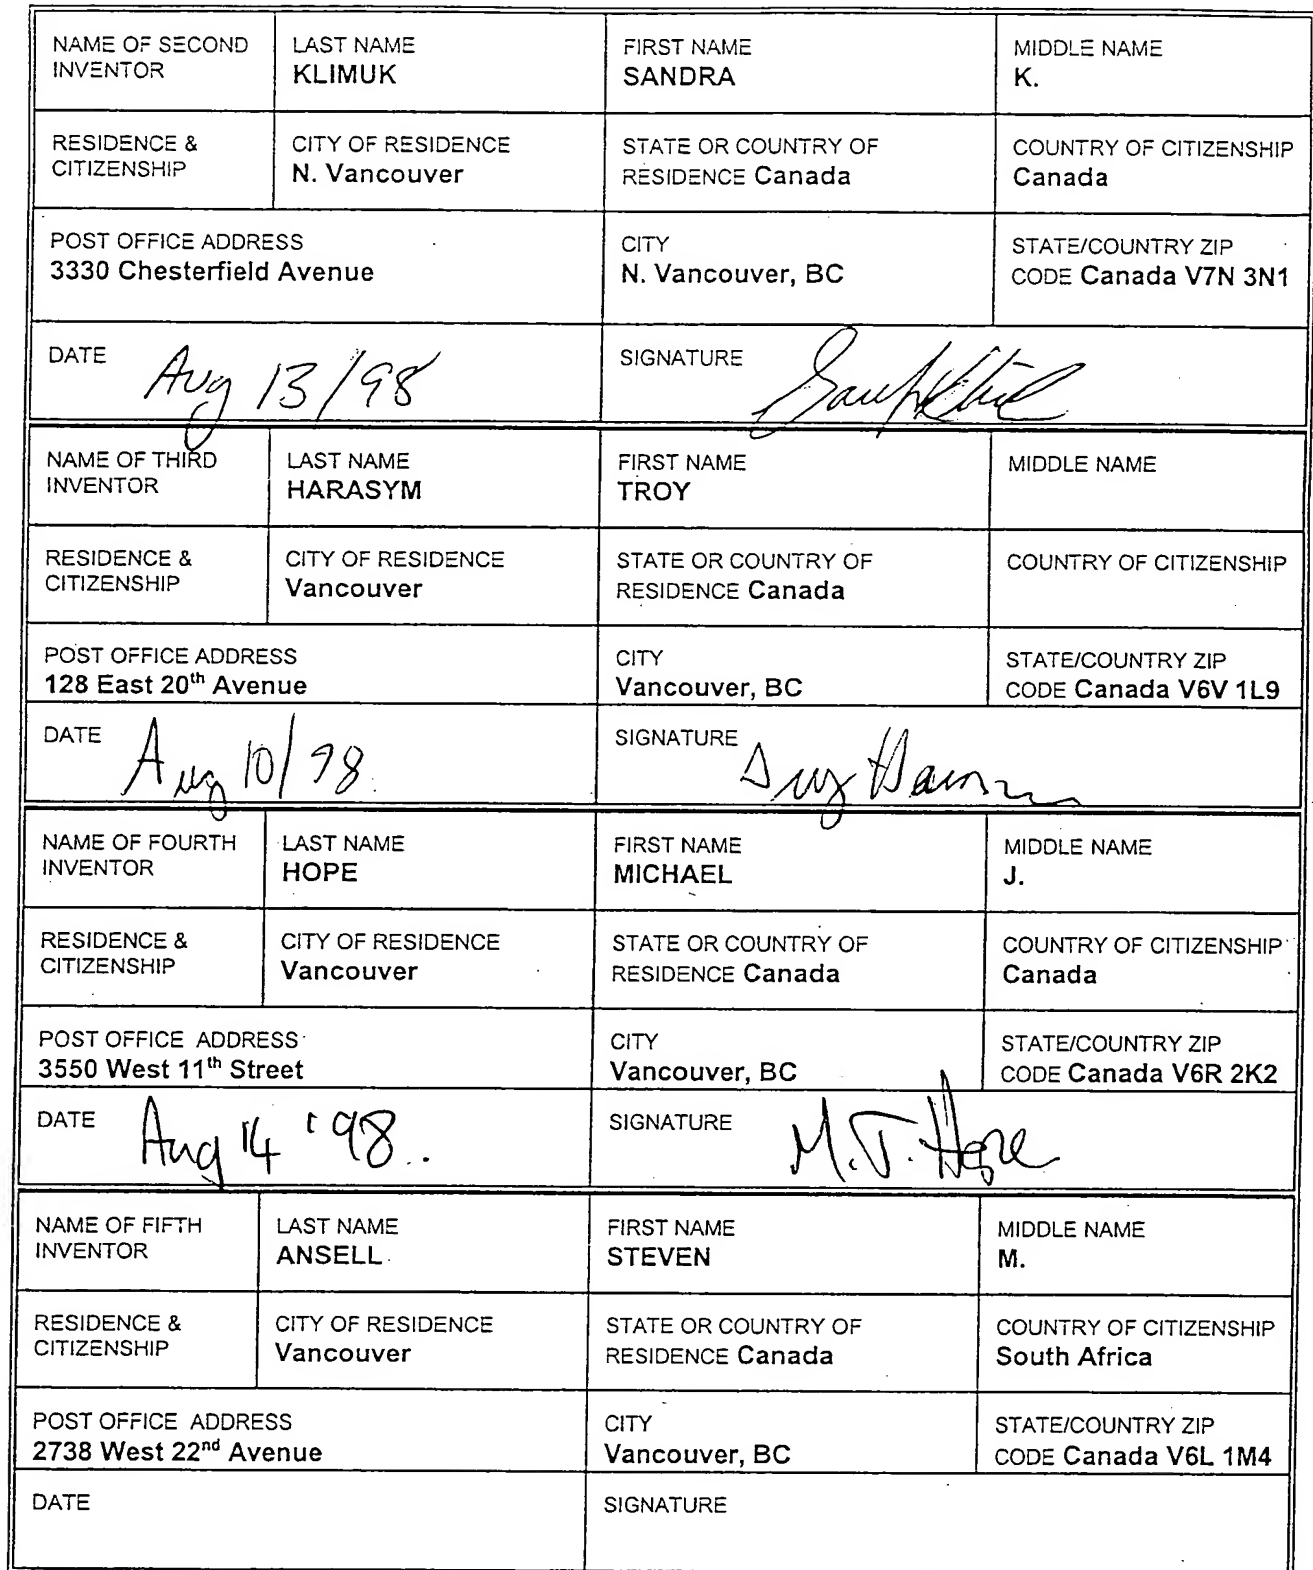 NAME OF SECOND INVENTOR
LAST NAME
KLIMUK
FIRST NAME
SANDRA
MIDDLE NAME
K.
RESIDENCE &
CITIZENSHIP
CITY OF RESIDENCE
N. Vancouver
STATE OR COUNTRY OF
RESIDENCE Canada
COUNTRY OF CITIZENSHIP
Canada
POST OFFICE ADDRESS
3330 Chesterfield Avenue
CITY
N. Vancouver, BC
STATE/COUNTRY ZIP
CODE Canada V7N 3N1
DATE Aug 13/98
SIGNATURE
NAME OF THIRD
INVENTOR
LAST NAME
HARASYM
FIRST NAME
TROY
MIDDLE NAME
RESIDENCE &
CITIZENSHIP
CITY OF RESIDENCE
Vancouver
STATE OR COUNTRY OF
RESIDENCE Canada
COUNTRY OF CITIZENSHIP
POST OFFICE ADDRESS
128 East 20th Avenue
CITY
Vancouver, BC
STATE/COUNTRY ZIP
CODE Canada V6V 1L9
DATE Aug 10/98
SIGNATURE
NAME OF FOURTH
INVENTOR
LAST NAME
HOPE
FIRST NAME
MICHAEL
MIDDLE NAME
J.
RESIDENCE &
CITIZENSHIP
CITY OF RESIDENCE
Vancouver
STATE OR COUNTRY OF
RESIDENCE Canada
COUNTRY OF CITIZENSHIP
Canada
POST OFFICE ADDRESS
3550 West 11th Street
CITY
Vancouver, BC
STATE/COUNTRY ZIP
CODE Canada V6R 2K2
DATE Aug 14 '98.
SIGNATURE M.J. Hope
NAME OF FIFTH
INVENTOR
LAST NAME
ANSELL
FIRST NAME
STEVEN
MIDDLE NAME
M.
RESIDENCE &
CITIZENSHIP
CITY OF RESIDENCE
Vancouver
STATE OR COUNTRY OF
RESIDENCE Canada
COUNTRY OF CITIZENSHIP
South Africa
POST OFFICE ADDRESS
2738 West 22nd Avenue
CITY
Vancouver, BC
STATE/COUNTRY ZIP
CODE Canada V6L 1M4
DATE
SIGNATURE